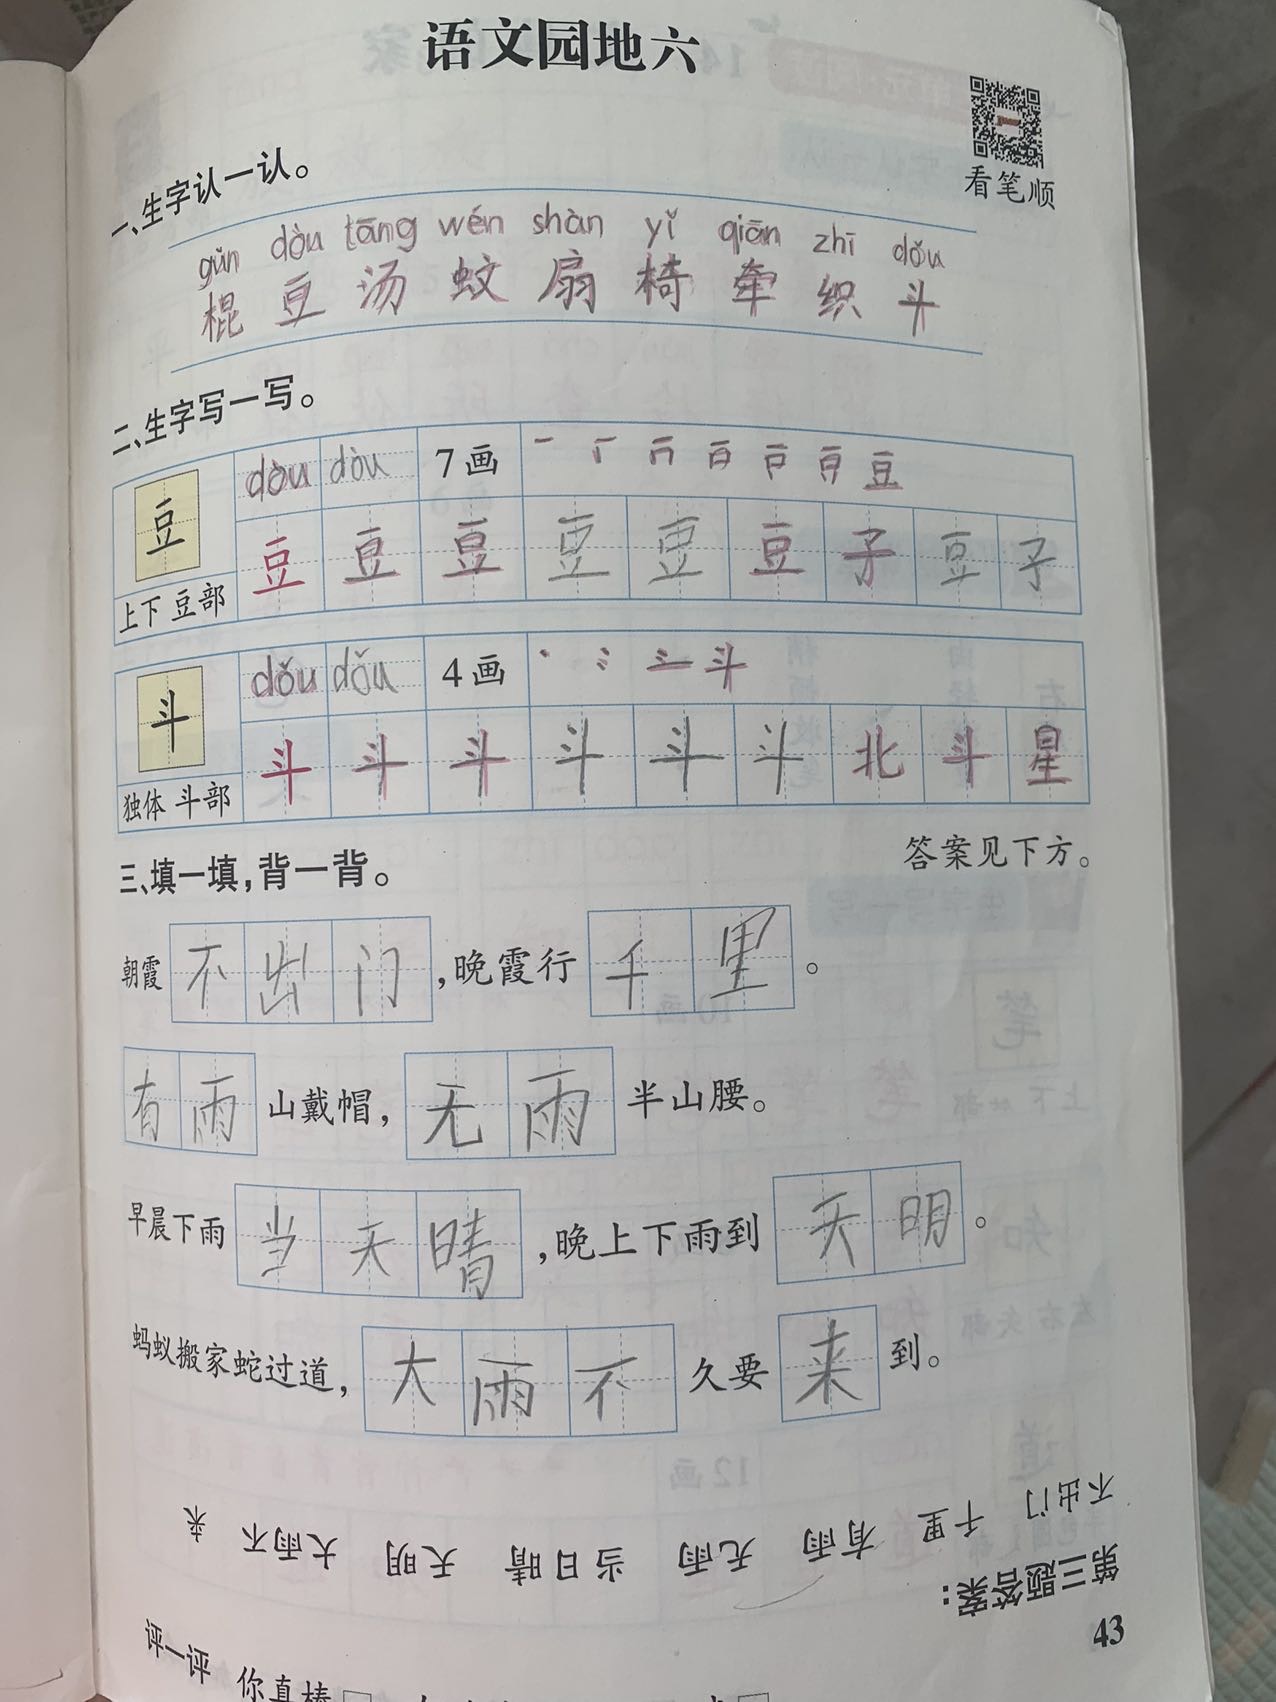 语文园地六
看笔顺
一、生字认一认。
gùn dòu tāng wén shàn yǐ qiān zhī dǒu
棍 豆 汤 蚊 扇 椅 牵 织 斗
二、生字写一写。
豆 dòu dòu 7画
上下 豆部 豆 豆 豆 豆 豆 豆 子 豆 子
斗 dǒu dǒu 4画
独体 斗部 斗 斗 斗 斗 斗 斗 北 斗 星
三、填一填,背一背。 答案见下方。
朝霞不出门,晚霞行千里。
有雨山戴帽,无雨半山腰。
早晨下雨当天晴,晚上下雨到天明。
蚂蚁搬家蛇过道,大雨不久要来到。
第三题答案:
不出门 千里 有雨 无雨 当日晴 天明 大雨不 来
43
评一评 你真棒